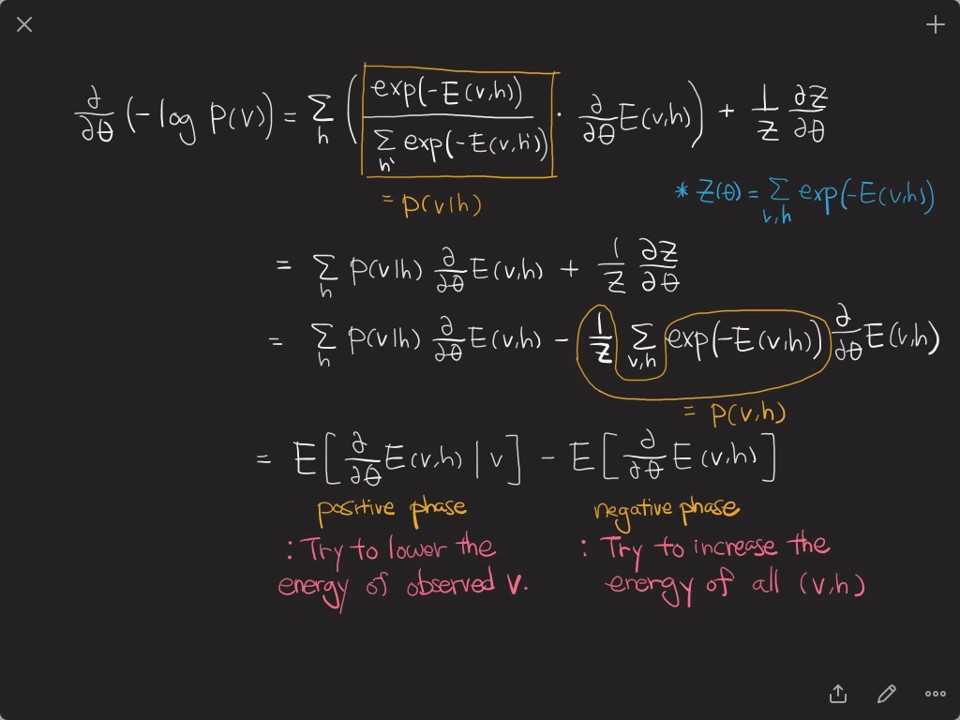 ∂/∂θ (-log P(v)) = Σ_h ( exp(-E(v,h)) / Σ_h' exp(-E(v,h')) · ∂/∂θ E(v,h) ) + 1/Z ∂Z/∂θ
= p(v|h)
* Z(θ) = Σ_v,h exp(-E(v,h))
= Σ_h P(v|h) ∂/∂θ E(v,h) + 1/Z ∂Z/∂θ
= Σ_h P(v|h) ∂/∂θ E(v,h) - 1/Z Σ_v,h exp(-E(v,h)) ∂/∂θ E(v,h)
= P(v,h)
= E[∂/∂θ E(v,h) | v] - E[∂/∂θ E(v,h)]
positive phase
: Try to lower the
energy of observed v.
negative phase
: Try to increase the
energy of all (v,h)